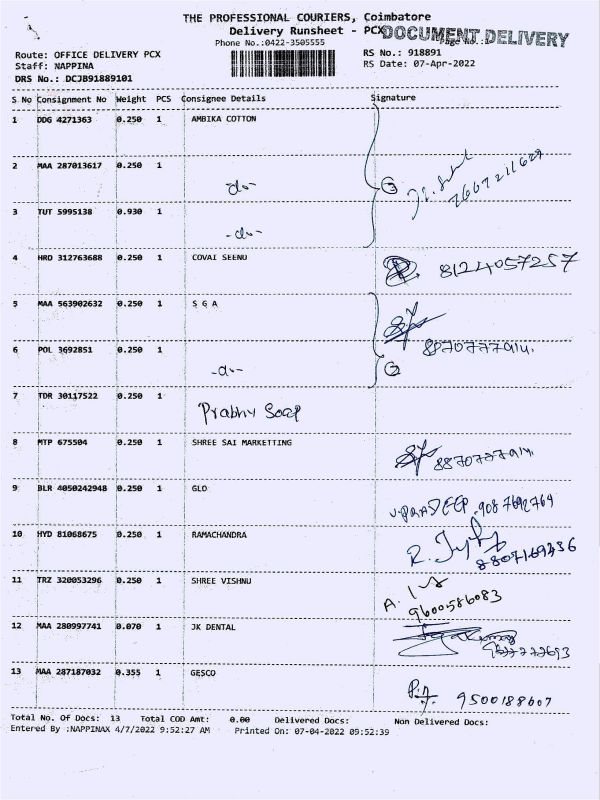 THE PROFESSIONAL COURIERS, Coimbatore
Delivery Runsheet - PCX
DOCUMENT DELIVERY
Phone No.:0422-3505555
Page No.:1
Route: OFFICE DELIVERY PCX
RS No.: 918891
Staff: NAPPINA
RS Date: 07-Apr-2022
DRS No.: DCJB91889101
S No Consignment No Weight PCS Consignee Details Signature
1 DDG 4271363 0.250 1 AMBIKA COTTON
2 MAA 287013617 0.250 1 -do-
3 TUT 5995138 0.930 1 -do-
4 HRD 312763688 0.250 1 COVAI SEENU 8124057257
5 MAA 563902632 0.250 1 S G A
6 POL 3692851 0.250 1 -do- 8870777914.
7 TDR 30117522 0.250 1 Prabhu Soap
8 MTP 675504 0.250 1 SHREE SAI MARKETTING 8870777914
9 BLR 4050242948 0.250 1 GLO V.PRADEEP.9087692764
10 HYD 81068675 0.250 1 RAMACHANDRA 8807169436
11 TRZ 320053296 0.250 1 SHREE VISHNU 9600586083
12 MAA 280997741 0.070 1 JK DENTAL
13 MAA 287187032 0.355 1 GESCO 9500188607
Total No. Of Docs: 13 Total COD Amt: 0.00 Delivered Docs: Non Delivered Docs:
Entered By :NAPPINAX 4/7/2022 9:52:27 AM Printed On: 07-04-2022 09:52:39